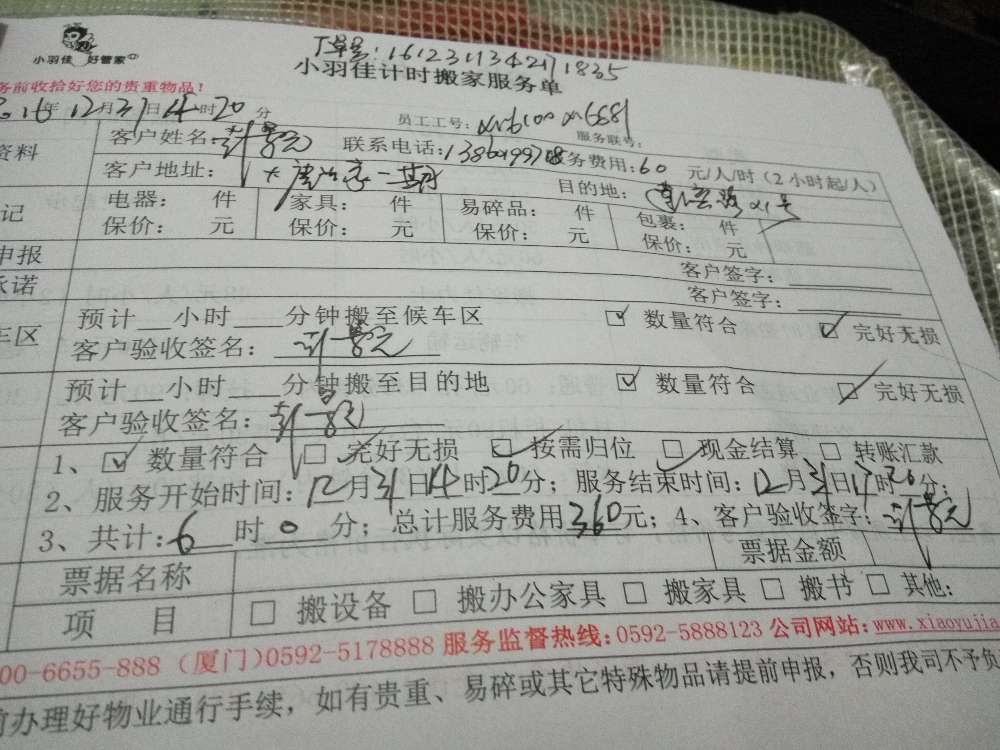 小羽佳 好管家
丁单号:1612311342171835
小羽佳计时搬家服务单
务前收拾好您的贵重物品!
16年12月31日14时20分
员工工号:
服务联号:
资料
客户姓名:
联系电话:
服务费用:60元/人/时(2小时起/人)
客户地址:
目的地:
记
电器: 件 家具: 件 易碎品: 件 包裹: 件
保价: 元 保价: 元 保价: 元 保价: 元
申报
客户签字:
承诺
客户签字:
车区
预计__小时___分钟搬至候车区 ☑ 数量符合 ☑ 完好无损
客户验收签名:
预计__小时___分钟搬至目的地 ☑ 数量符合 ☑ 完好无损
客户验收签名:
1、☑ 数量符合 ☑ 完好无损 ☑ 按需归位 ☑ 现金结算 □ 转账汇款
2、服务开始时间:12月31日14时20分;服务结束时间:12月31日17时20分;
3、共计:6时0分;总计服务费用360元;4、客户验收签字:
票据名称
票据金额
项 目 □ 搬设备 □ 搬办公家具 □ 搬家具 □ 搬书 □ 其他:
00-6655-888(厦门)0592-5178888 服务监督热线:0592-5888123 公司网站:www.xiaoyujia
前办理好物业通行手续,如有贵重、易碎或其它特殊物品请提前申报,否则我司不予负